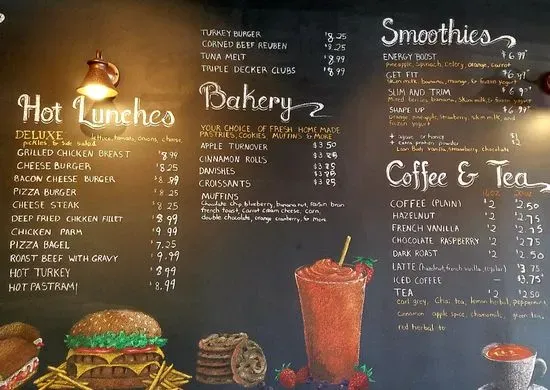 Hot Lunches
DELUXE lettuce, tomato, onions, cheese,
pickles & side salad
GRILLED CHICKEN BREAST $8.99
CHEESE BURGER $8.25
BACON CHEESE BURGER $8.99
PIZZA BURGER $8.25
CHEESE STEAK $8.25
DEEP FRIED CHICKEN FILLET $8.99
CHICKEN PARM $9.99
PIZZA BAGEL $7.25
ROAST BEEF WITH GRAVY $9.99
HOT TURKEY $8.99
HOT PASTRAMI $8.99
TURKEY BURGER $8.25
CORNED BEEF REUBEN $8.25
TUNA MELT $8.99
TRIPLE DECKER CLUBS $8.99
Bakery
YOUR CHOICE OF FRESH HOME MADE
PASTRIES, COOKIES, MUFFINS, & MORE
APPLE TURNOVER $3.50
CINNAMON ROLLS
DANISHES
CROISSANTS
MUFFINS
chocolate chip, blueberry, banana nut, raisin bran
french toast, carrot cream cheese, corn,
double chocolate, orange cranberry, & More
Smoothies
ENERGY BOOST $6.99
pineapple, spinach, celery, orange, carrot
GET FIT $6.99
Skim milk, banana, mango, & frozen yogurt
SLIM AND TRIM $6.99
Mixed berries, banana, skim milk, & frozen yogurt
SHAPE UP $6.99
orange, pineapple, strawberry, skim milk, and
frozen yogurt
+ agave or honey
+ extra protein powder
Lean Body Vanilla, strawberry, chocolate
Coffee & Tea
16oz 20oz
COFFEE (PLAIN) $2 $2.50
HAZELNUT $2 $2.75
FRENCH VANILLA $2 $2.75
CHOCOLATE RASPBERRY $2 $2.75
DARK ROAST $2 $2.50
LATTE (hazelnut, french vanilla, regular) $3 $3.75
ICED COFFEE — $3
TEA $2 $2.50
earl grey, Chai tea, lemon herbal, peppermint
cinnamon apple spice, chamomile, green tea,
red herbal tea